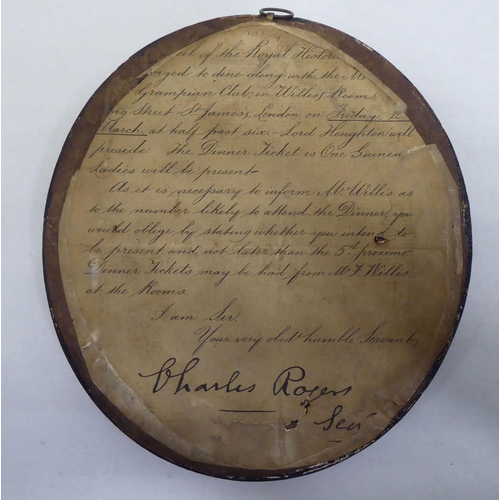 of the Royal Histor
to dine along with the Me
Grampian Club, in Willis's Rooms
Street St James's, London on Friday
March, at half past six. - Lord Houghton will
preside. The Dinner Ticket is One Guinea
Ladies will be present.
As it is necessary to inform Mr Willis as
to the number likely to attend the Dinner, you
would oblige by stating whether you intend to
be present and not later than the 5th proximo.
Dinner Tickets may be had from Mr F Willis
at the Rooms.
I am Sir,
Your very obdt humble Servant,
Charles Rogers
Secy